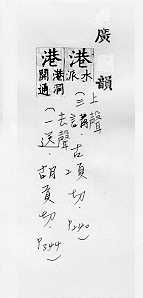 廣韻
港 水派
(上聲 三講.古項切. P240)
港 港洞開通
(去聲 一送.胡貢切. P344)